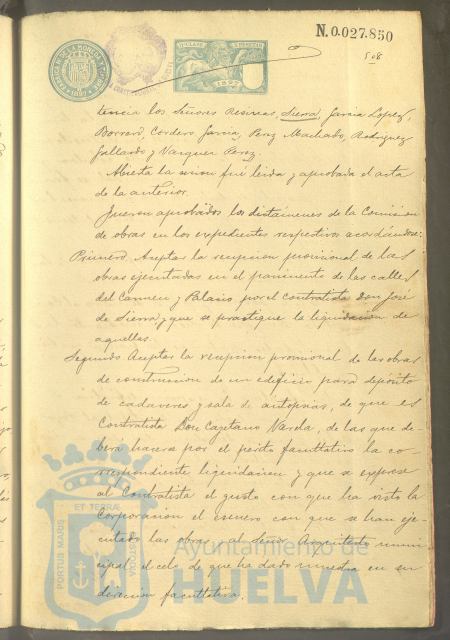 N.0.027.850
508
tencia los Señores Resinas, Sierra, Garcia Lopez,
Borrero, Cordero Garcia, Perez Machado, Rodriguez
Gallardo y Vazquez Perez.
Abierta la sesion fué leida y aprobada el acta
de la anterior.
Fueron aprobados los dictámenes de la Comision
de obras en los expedientes respectivos acordándose:
Primero. Aceptar la recepcion provisional de las
obras ejecutadas en el pavimento de las calles
del Carmen y Blanco por el contratista don José
de Sierra, y que se practique la liquidacion de
aquellas.
Segundo. Aceptar la recepcion provisional de las obras
de construccion de un edificio para depósito
de cadaveres y sala de autopsias, de que es
Contratista Don Cayetano Varela, de las que de-
berá hacerse por el perito facultativo la co-
rrespondiente liquidacion y que se exprese
al Contratista el gusto con que ha visto la
Corporacion el esmero con que se han eje-
cutado las obras y al Señor Arquitecto muni-
cipal, el celo de que ha dado muestra en su
direccion facultativa.
PORTUS MARIS
ET TERRAE
CUSTODIA
Ayuntamiento de
HUELVA